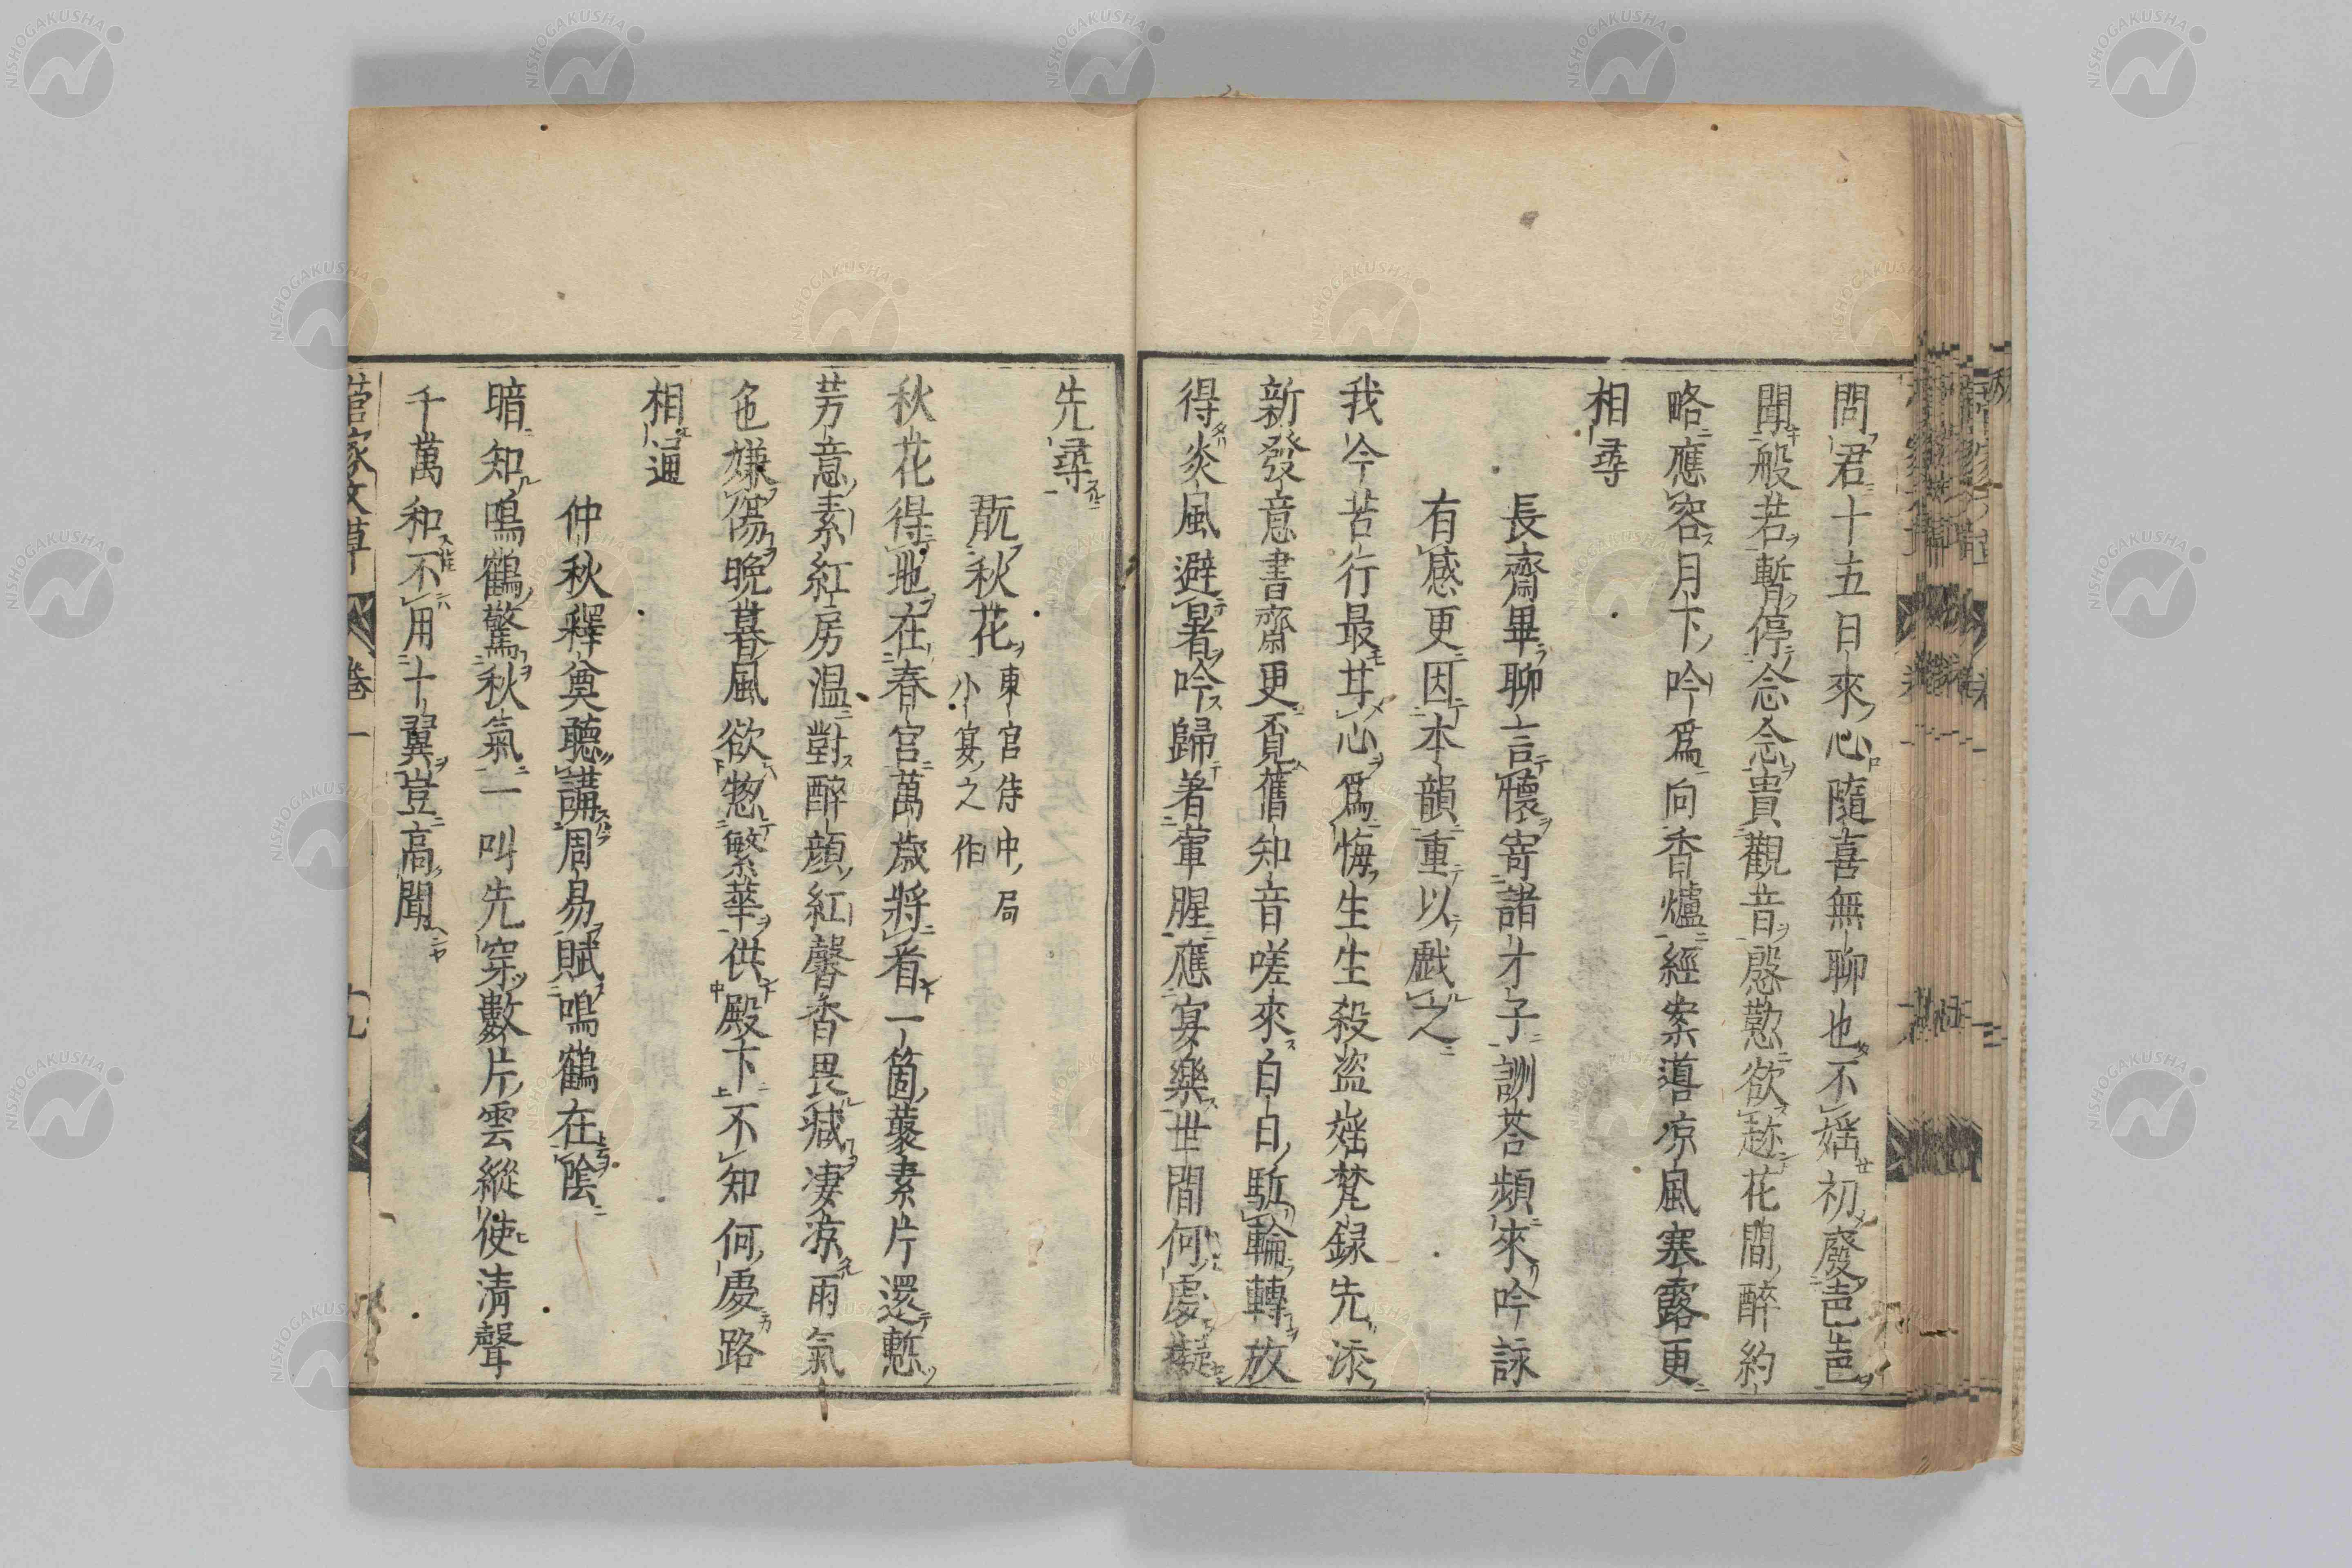 問君十五日來心隨喜無聊也不婬初廢邑邑
聞般若暫停念念貴觀音慇懃欲趂花間醉約
略應容月下吟爲向香爐經案噵凉風寒露更
相尋
長齋畢聊言懷寄諸才子訓荅頻來吟詠
有感更因本韻重以戯之
我今苦行最甘心爲悔生生殺盗婬梵録先添
新發意書齋更覔舊知音嗟來白日駈輪轉放
得炎風避暑吟歸著葷腥應宴樂世間何處擬
先尋
翫秋花
東宮侍中局
小宴之作
秋花得地在春宮萬歳將看一箇藂素片還慙
芳意素紅房温對醉顔紅馨香畏減凄凉雨氣
色嫌傷晩暮風欲惣繁華供殿下不知何處路
相通
仲秋釋奠聽講周易賦鳴鶴在陰
暗知鳴鶴驚秋氣一叫先穿數片雲縱使清聲
千萬和不用十翼豈高聞
菅家文草
卷一
十九
NISHOGAKUSHA